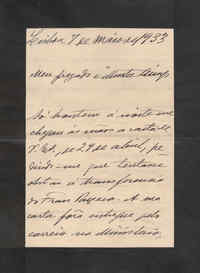 Lisboa 7 de Maio de 1933
Meu prezado e ilustre amigo
Só hontem á noite me
chegou ás mãos a carta de
V. Ex.ª, de 29 de abril, pe
dindo-me que tentasse
obter a transferencia
do Fran Paxeco. A m.ª
carta fôra entregue pelo
correio no Ministerio,